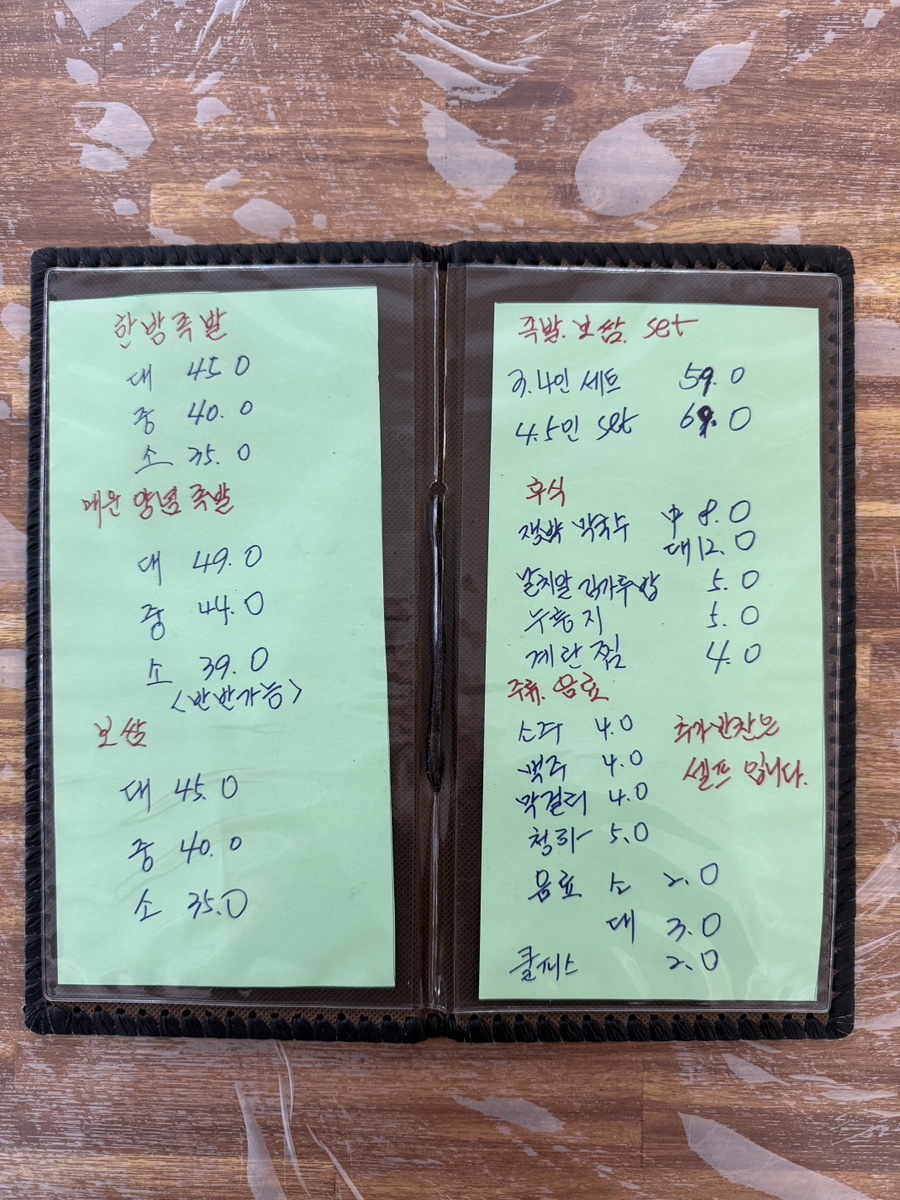 한방족발
대 45.0
중 40.0
소 35.0
매운 양념 족발
대 49.0
중 44.0
소 39.0
<반반가능>
보쌈
대 45.0
중 40.0
소 35.0
족발.보쌈. set
3.4인 세트 59.0
4.5인 set 69.0
후식
쟁반 막국수 中 8.0
대 12.0
날치알 김가루밥 5.0
누룽지 5.0
계란찜 4.0
주류.음료
소주 4.0
맥주 4.0
막걸리 4.0
청하 5.0
음료 소 2.0
대 3.0
쿨피스 2.0
추가반찬은
셀프 입니다.